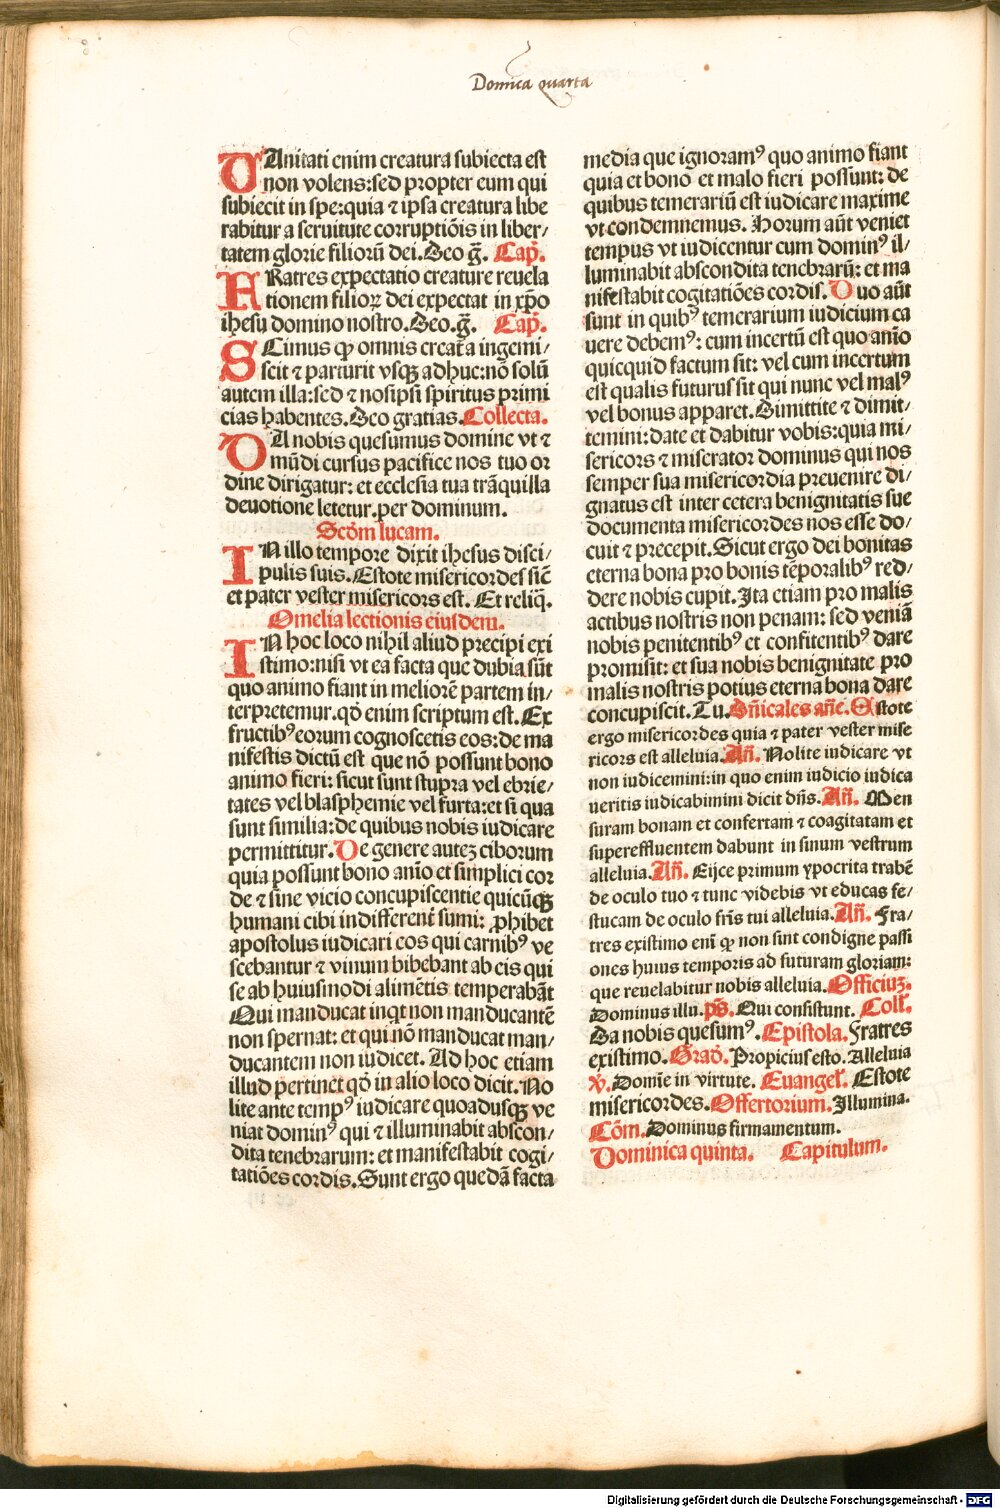 Domīca quarta
VAnitati enim creatura subiecta est
non volens: sed propter eum qui
subiecit in spe: quia ⁊ ipsa creatura libe
rabitur a seruitute corruptiōis in liber/
tatem glorie filiorū dei. Deo g̅. Cap̄.
FRatres expectatio creature reuela
tionem filioꝝ dei expectat in xp̄o
ihesu domino nostro. Deo. g̅. Cap̄.
SCimus ꝙ omnis creat᷑a ingemi/
scit ⁊ parturit vsqꝫ adhuc: nō solū
autem illa: sed ⁊ nosipsi spiritus primi
cias habentes. Deo gratias. Collecta.
DA nobis quesumus domine vt ⁊
mūdi cursus pacifice nos tuo or
dine dirigatur: et ecclesia tua trāquilla
deuotione letetur. per dominum.
Scd̄m lucam.
IN illo tempore dixit ihesus disci/
pulis suis. Estote misericordes sic̄
et pater vester misericors est. Et reliq̄.
Omelia lectionis eiusdem.
IN hoc loco nihil aliud precipi exi
stimo: nisi vt ea facta que dubia sūt
quo animo fiant in meliorē partem in/
terpretemur. qd̄ enim scriptum est. Ex
fructibꝰ eorum cognoscetis eos: de ma
nifestis dictū est que nō possunt bono
animo fieri: sicut sunt stupra vel ebrie/
tates vel blasphemie vel furta: et si qua
sunt similia: de quibus nobis iudicare
permittitur. De genere auteꝫ ciborum
quia possunt bono aīo et simplici cor
de ⁊ sine vicio concupiscentie quicūqꝫ
humani cibi indifferent᷑ sumi: ꝓhibet
apostolus iudicari eos qui carnibꝰ ve
scebantur ⁊ vinum bibebant ab eis qui
se ab huiusmodi alimētis temperabāt
Qui manducat inqͥt non manducantē
non spernat: et qui nō manducat man/
ducantem non iudicet. Ad hoc etiam
illud pertinet qd̄ in alio loco dicit. No
lite ante tempꝰ iudicare quoadusqꝫ ve
niat dominꝰ qui ⁊ illuminabit abscon/
dita tenebrarum: et manifestabit cogi/
tatiōes cordis. Sunt ergo quedā facta
media que ignoramꝰ quo animo fiant
quia et bono et malo fieri possunt: de
quibus temerariū est iudicare maxime
vt condemnemus. Horum aūt veniet
tempus vt iudicentur cum dominꝰ il/
luminabit abscondita tenebrarū: et ma
nifestabit cogitatiōes cordis. Duo aūt
sunt in quibꝰ temerarium iudicium ca
uere debemꝰ: cum incertū est quo aīo
quicquid factum sit: vel cum incertum
est qualis futurus sit qui nunc vel malꝰ
vel bonus apparet. Dimittite ⁊ dimit/
temini: date et dabitur vobis: quia mi/
sericors ⁊ miserator dominus qui nos
semper sua misericordia preuenire di/
gnatus est inter cetera benignitatis sue
documenta misericordes nos esse do/
cuit ⁊ precepit. Sicut ergo dei bonitas
eterna bona pro bonis tēporalibꝰ red/
dere nobis cupit. Ita etiam pro malis
actibus nostris non penam: sed veniā
nobis penitentibꝰ et confitentibꝰ dare
promisit: et sua nobis benignitate pro
malis nostris potius eterna bona dare
concupiscit. Tu. Dn̄icales an̄e. Estote
ergo misericordes quia ⁊ pater vester mise
ricors est alleluia. An̄. Nolite iudicare vt
non iudicemini: in quo enim iudicio iudica
ueritis iudicabimini dicit dn̄s. An̄. Men
suram bonam et confertam ⁊ coagitatam et
supereffluentem dabunt in sinum vestrum
alleluia. An̄. Eijce primum ypocrita trabē
de oculo tuo ⁊ tunc videbis vt educas fe/
stucam de oculo fr̄is tui alleluia. An̄. Fra/
tres existimo enī ꝙ non sint condigne passi
ones huius temporis ad futuram gloriam:
que reuelabitur nobis alleluia. Officiuꝫ.
Dominus illu. ps̄. Qui consistunt. Coll̄.
Da nobis quesumꝰ. Epistola. Fratres
existimo. Grad̄. Propicius esto. Alleluia
v̄. Domīe in virtute. Euangel̄. Estote
misericordes. Offertorium. Illumina.
Cōm. Dominus firmamentum.
Dominica quinta. Capitulum.
Digitalisierung gefördert durch die Deutsche Forschungsgemeinschaft - DFG